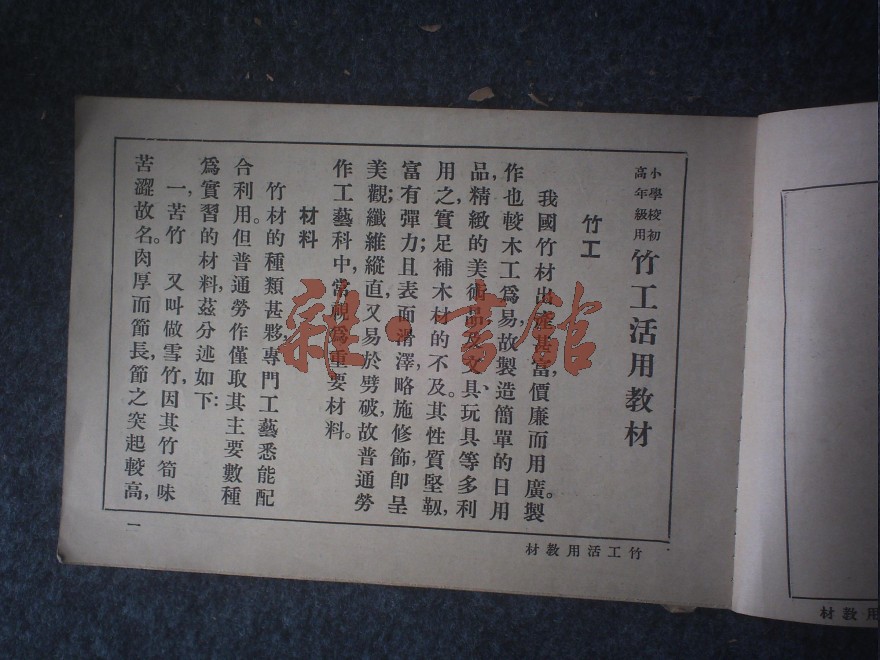 小學校初
高年級用
竹工活用教材
竹工
我國竹材出產甚富，價廉而用廣。製
作也較木工爲易，故製造簡單的日用
品，精緻的美術品，及文具、玩具等，多利
用之，實足補木材的不及。其性質堅韌，
富有彈力；且表面滑澤，略施修飾，卽呈
美觀；纖維縱直，又易於劈破，故普通勞
作工藝科中，常視爲重要材料。
材料
竹材的種類甚夥，專門工藝悉能配
合利用。但普通勞作僅取其主要數種
爲實習的材料，茲分述如下：
一，苦竹　又叫做雪竹，因其竹筍味
苦澀故名。肉厚而節長，節之突起較高，
一
竹工活用教材
用教材
雜·書館